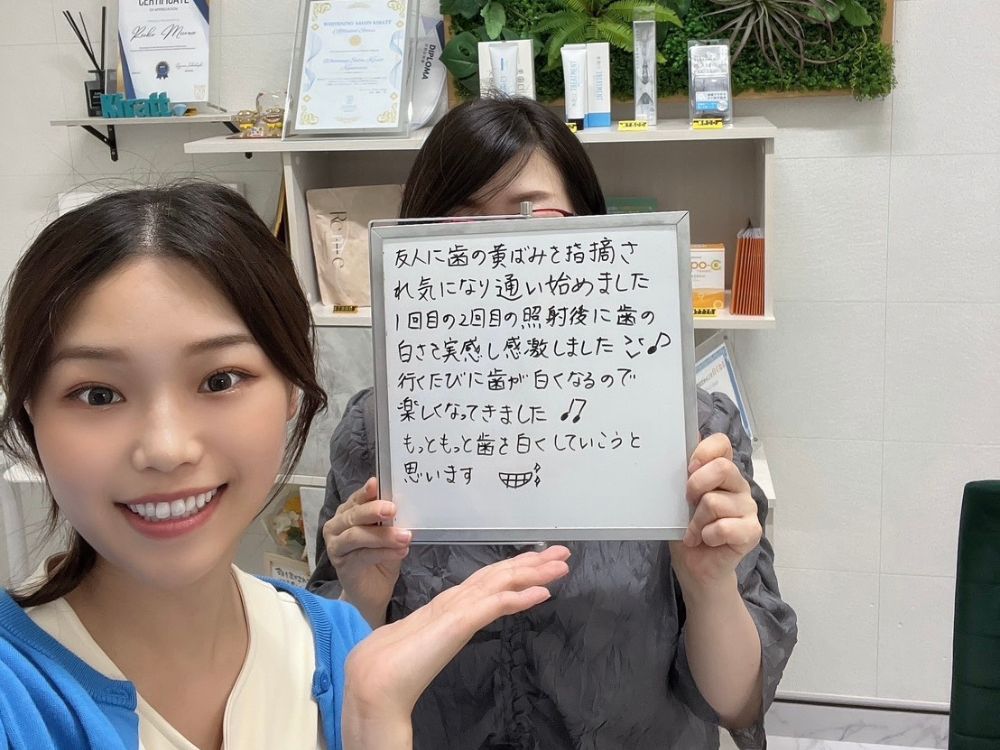 CERTIFICATE
OF APPRECIATION
WHITENING SALON KIRATT
DIPLOMA
Kiratt
友人に歯の黄ばみを指摘さ
れ気になり通い始めました
1回目の2回目の照射後に歯の
白さを実感し感激しました
行くたびに歯が白くなるので
楽しくなってきました
もっともっと歯を白くしていこうと
思います